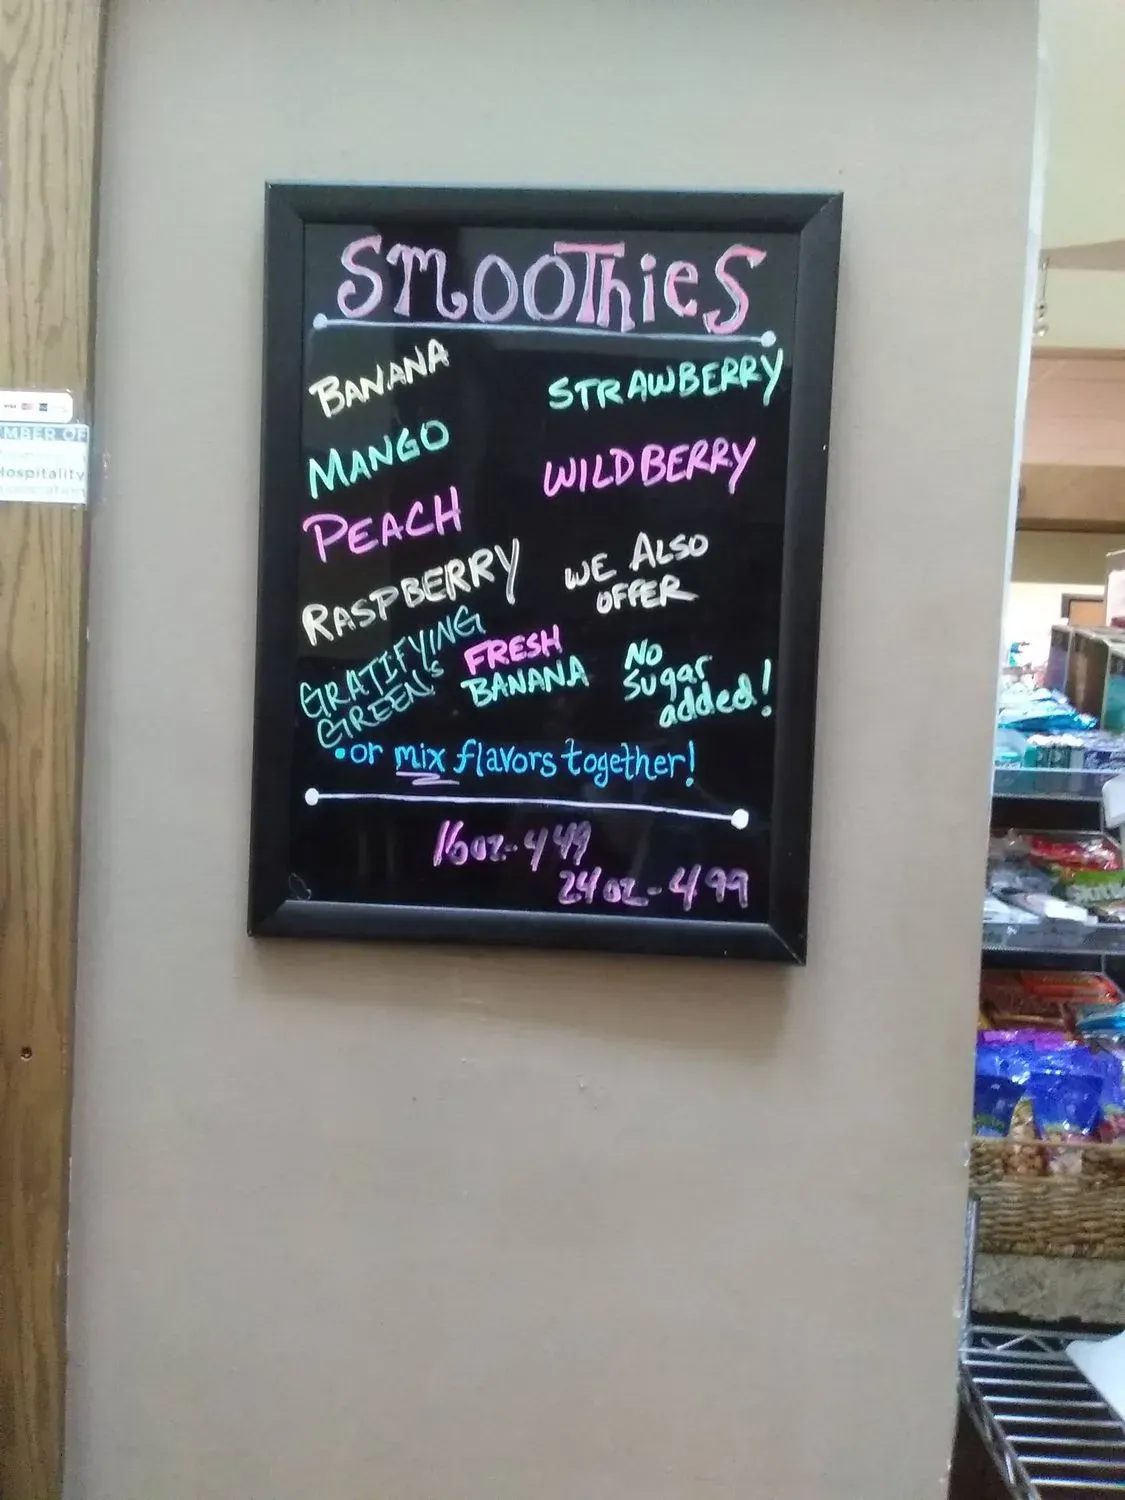 SmooThieS
BANANA
MANGO
PEACH
RASPBERRY
GRATIFYING
GREEN'S
STRAWBERRY
WILDBERRY
WE ALSO
OFFER
FRESH
BANANA
No
Sugar
added!
•or mix flavors together!
16oz-449
24oz-499
MBER OF
Hospitality